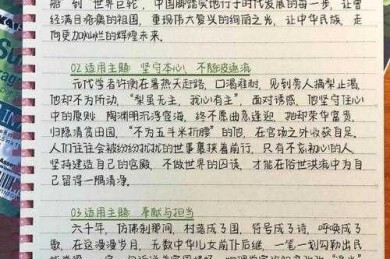 船 到 世界巨轮，中国脚踏实地行于时代发展的每一步，让曾
经满目疮痍的祖国，重现伟大复兴的绚丽之光，让中华民族，走
向更加灿烂的辉煌未来。
02 适用主题 坚守本心、不随波逐流
元代学者许衡在暑热天赶路，口渴难耐，见到旁人摘梨止渴，
他却不为所动，“梨虽无主，我心有主”，面对诱惑，他坚守住心
中的原则，陶渊明沉浮宦海，终不愿曲意逢迎，抛却荣华富贵，
归隐清贫田园，“不为五斗米折腰”的他，在官场之外收获自足。
人们往往会被纷纷扰扰的世事裹挟着前行，只有不忘初心的人
坚持建造自己的宫殿，不做世界的囚徒，才能在俗世洪流中为自
己留得一隅清净。
03 适用主题 奉献与担当
六十年，仿佛刹那间，村落成了国，符号成了诗，呼唤成了
歌，在这漫漫岁月，无数中华儿女前仆后继，一笔一划勾勒出民